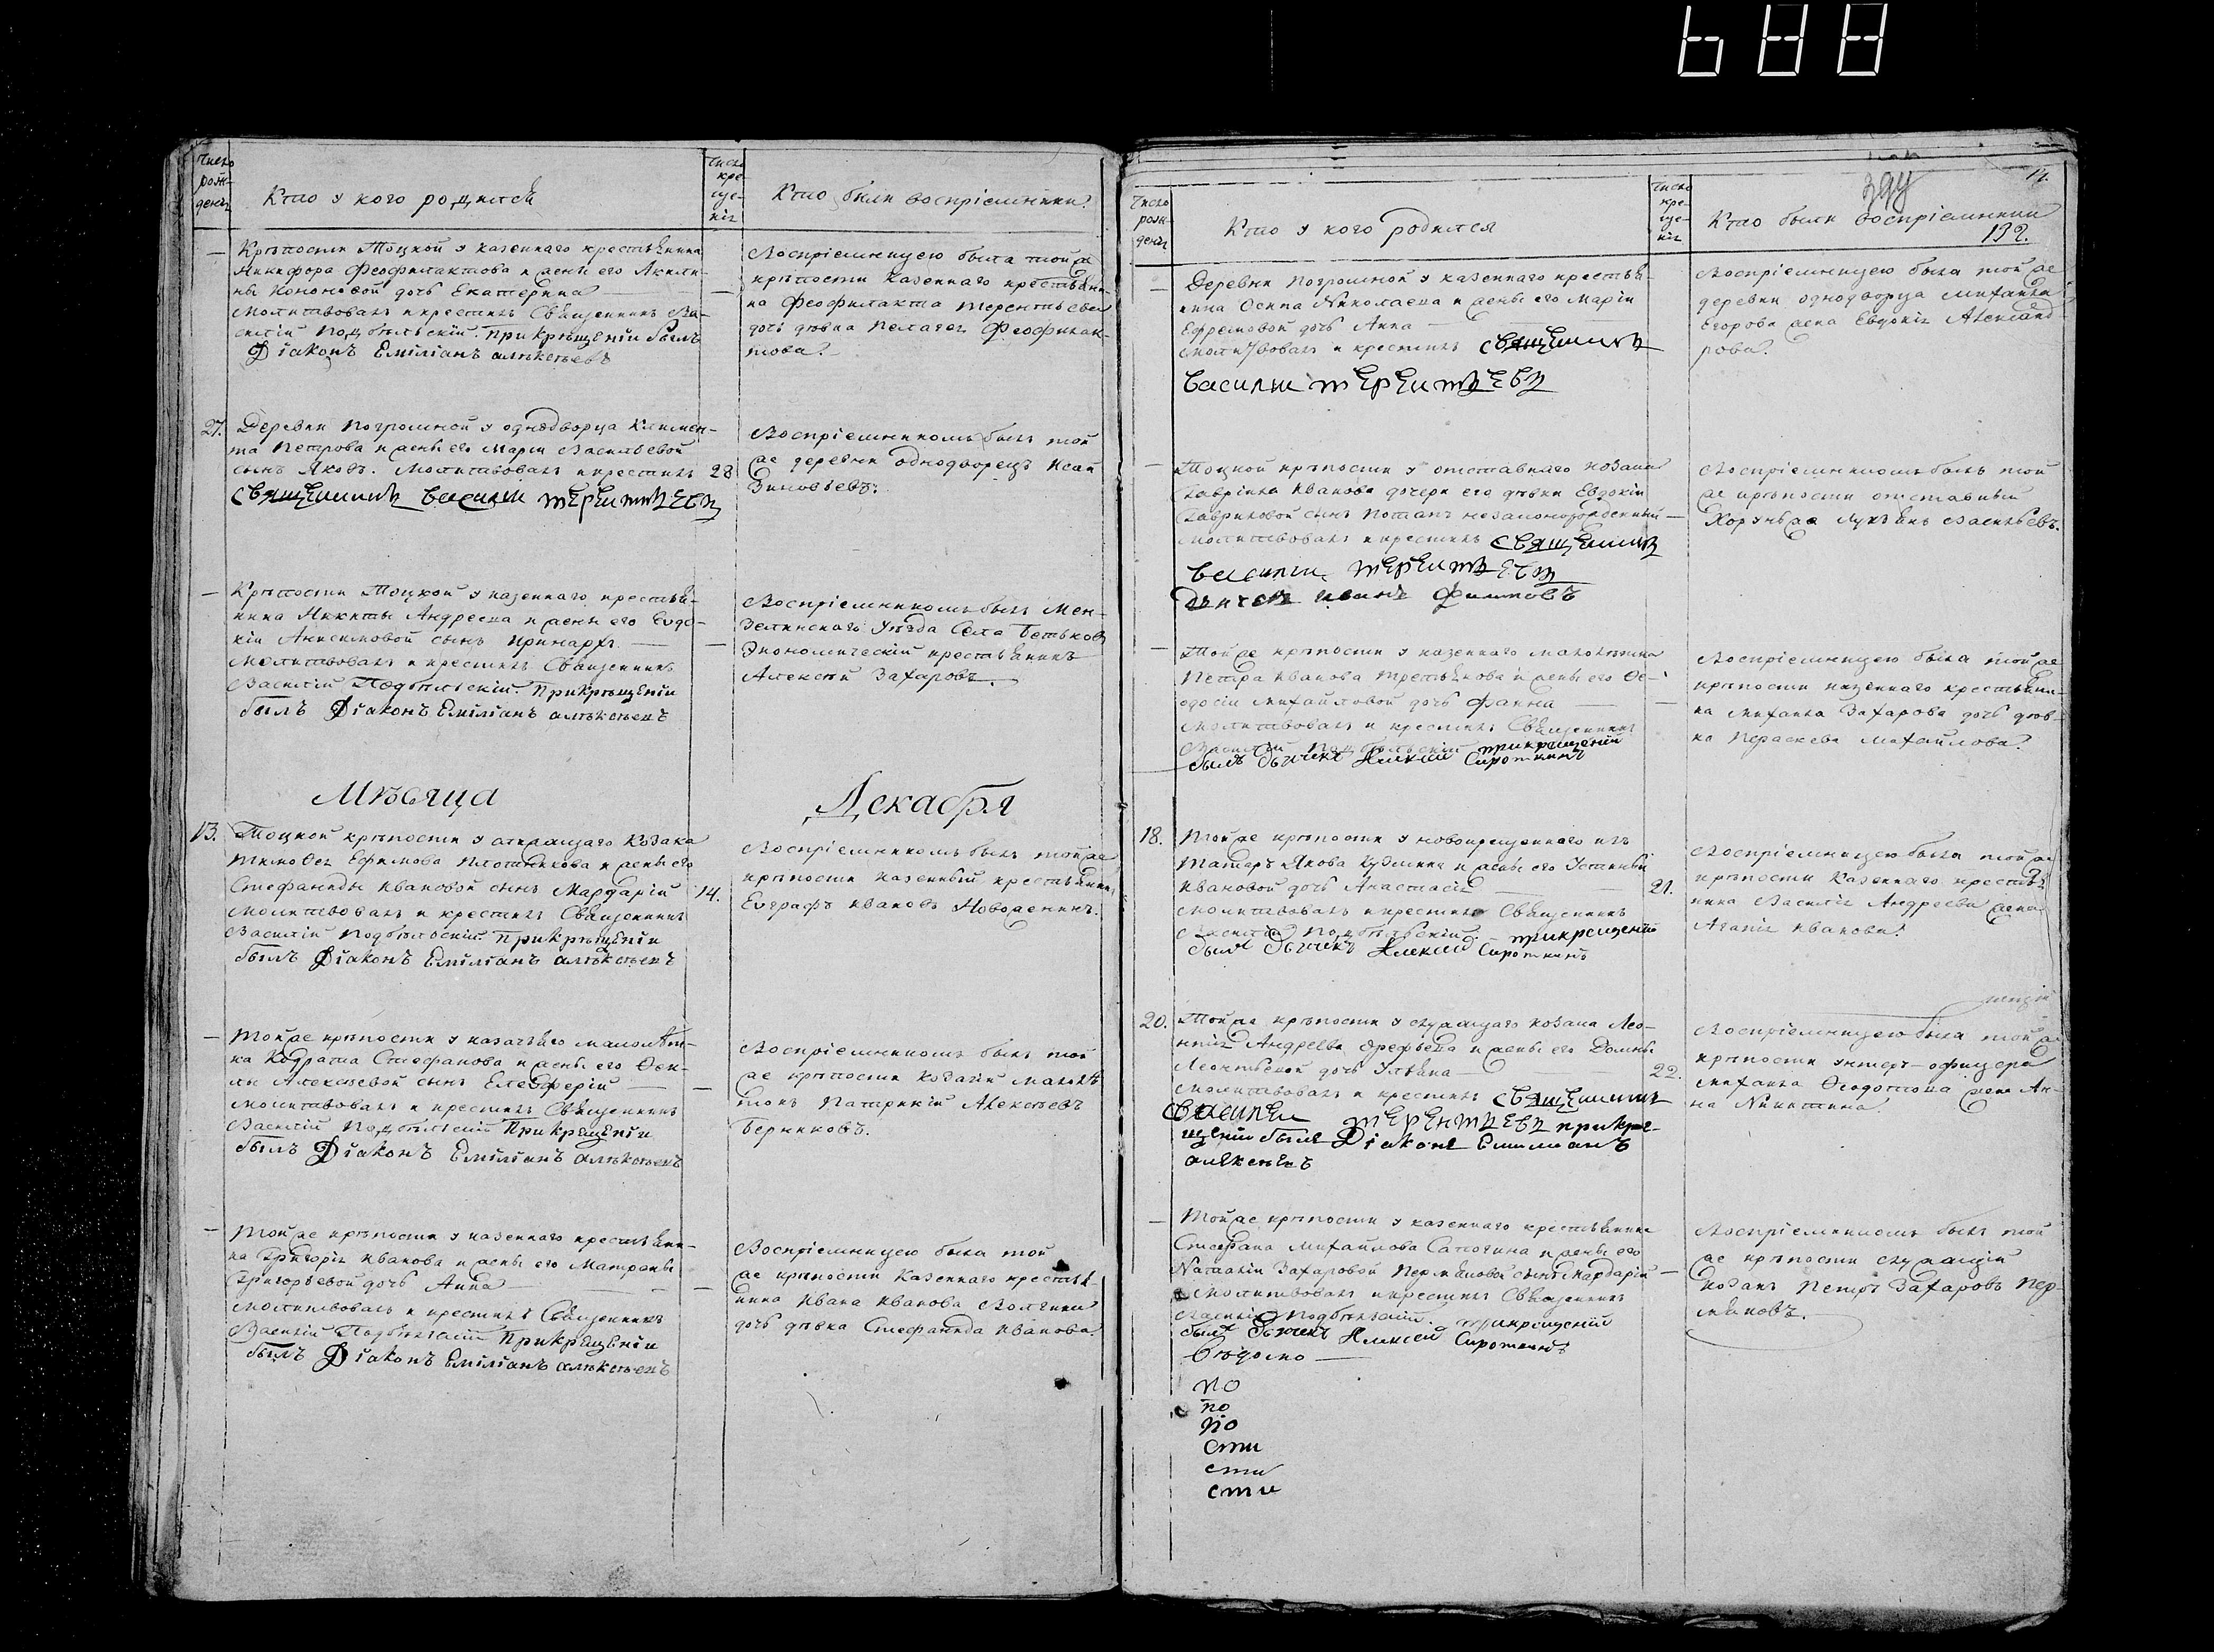 688
Число рож- денія
Кто у кого родился
Число кре- ще- нія
Кто были воспріемники.
— Крѣпости Тоцкой у казеннаго крестьянина
Никифора Феофилактова и жены его Акили-
ны Кононовой дочь Екатерина —
молитвовалъ и крестилъ Священникъ Ва-
силій Подбѣльскій. прикрѣщеніи былъ
Діаконъ Емиліанъ алѣксѣевъ
Воспріемницею была той же
крѣпости казеннаго крестьяни-
на Феофилакта Терентьева
дочь дѣвка Пелагея Феофилак-
това.
27. Деревни Погромной у однодворца Климен-
та Петрова и жены его Маріи Васильевой
сынъ Яковъ. молитвовалъ и крестилъ 28
священникъ василии терентьевъ
Воспріемникомъ былъ той
же деревни однодворецъ Исай
Зиновьевъ.
— Крѣпости Тоцкой у казеннаго крестья-
нина Никиты Андреева и жены его Евдо-
кіи Анисимовой сынъ Иринархъ —
молитвовалъ и крестилъ Священникъ
Василій Подбѣльскій. прикрѣщеніи
былъ Діаконъ Емиліанъ алѣксѣевъ
Воспріемникомъ былъ Мен-
зелинскаго уѣзда села Бетьковъ
экономическій крестьянинъ
Алексѣй Захаровъ.
Мѣсяца Декабря
13. Тоцкой крѣпости у служащаго козака
Тимофея Ефимова Плотникова и жены его
Стефаниды Ивановой сынъ Мардарій 14.
молитвовалъ и крестилъ Священникъ
Василій Подбѣльскій. прикрѣщеніи
былъ Діаконъ Емиліанъ алѣксѣевъ
Воспріемникомъ былъ той же
крѣпости казенный крестьянинъ
Евграфъ Ивановъ Новоженинъ.
— Той же крѣпости у казачьяго малолѣт-
ка Кодрата Стефанова и жены его Фек-
лы Алексѣевой сынъ Елевферій —
молитвовалъ и крестилъ Священникъ
Василій Подбѣльскій прикрещеніи
былъ Діаконъ Емиліанъ алѣксѣевъ
Воспріемникомъ былъ той
же крѣпости козачій малолѣ-
токъ Патрикій Алексѣевъ
Беринковъ.
— Той же крѣпости у казеннаго крестьяни-
на Григорія Иванова и жены его Матроны
Григорьевой дочь Анна —
молитвовалъ и крестилъ Священникъ
Василій Подбѣльскій прикрещеніи
былъ Діаконъ Емиліанъ алѣксѣевъ
Воспріемницею была той
же крѣпости казеннаго крестья-
нина Ивана Иванова
дочь дѣвка Стефанида Иванова.
Число рож- денія
Кто у кого родился
Число кре- ще- нія
Кто были воспріемники
132.
— Деревни Погромной у казеннаго крестья-
нина Осипа Николаева и жены его Маріи
Ефремовой дочь Анна —
молитвовалъ и крестилъ священникъ
василии терентьевъ
Воспріемницею была той же
деревни однодворца Михаила
Егорова жена Евдокія Александ-
рова.
— Тоцкой крѣпости у отставнаго козака
Гавріила Иванова дочери его дѣвки Евдокіи
Гавриловой сынъ Потапъ незаконорожденный —
молитвовалъ и крестилъ священникъ
василии терентьевъ
дьячекъ иванъ филиповъ
Воспріемникомъ былъ той
же крѣпости отставный
Хорунжа Лукьянъ Васильевъ.
— Той же крѣпости у казеннаго малолѣтка
Петра Иванова Третьякова и жены его Фе-
одосіи Михайловой дочь Фаина —
молитвовалъ и крестилъ Священникъ
Василій Подбѣльскій прикрещеніи
былъ дьячекъ Алексей Сироткинъ
Воспріемницею была той же
крѣпости казеннаго крестьяни-
на Михаила Захарова дочь дѣв-
ка Пераскева Михайлова.
18. Той же крѣпости у новокрещеннаго изъ
Татаръ Якова Кузмина и жены его Устиньи
Ивановой дочь Анастасія — 21.
молитвовалъ и крестилъ Священникъ
Василій Подбѣльскій. прикрещеніи
былъ Дьячекъ Алексей Сироткинъ
Воспріемницею была той же
крѣпости казеннаго крестья-
нина Василія Андреева жена
Агапія Иванова.
20. Той же крѣпости у служащаго козака Лео-
нтія Андреева Арефьева и жены его Домны
Леонтьевой дочь Ульяна — 22.
молитвовалъ и крестилъ священникъ
василеи терентьевъ прикре-
щеніи былъ Діаконъ Емилианъ
алексеевъ
Воспріемницею была той же
крѣпости унтеръ-офицера
Михаила Федотова жена Ан-
на Никитина
— Той же крѣпости у казеннаго крестьянина
Стефана Михайлова Сапогина и жены его
Наталіи Захаровой Пермяковой сынъ Мардарій —
молитвовалъ и крестилъ Священникъ
Василій Подбѣльскій. прикрещеніи
былъ Дьячекъ Алексей Сироткинъ
Воспріемникомъ былъ той
же крѣпости служащій
козакъ Петръ Захаровъ Пер-
мяковъ.
по
по
по
сти
сти
сти